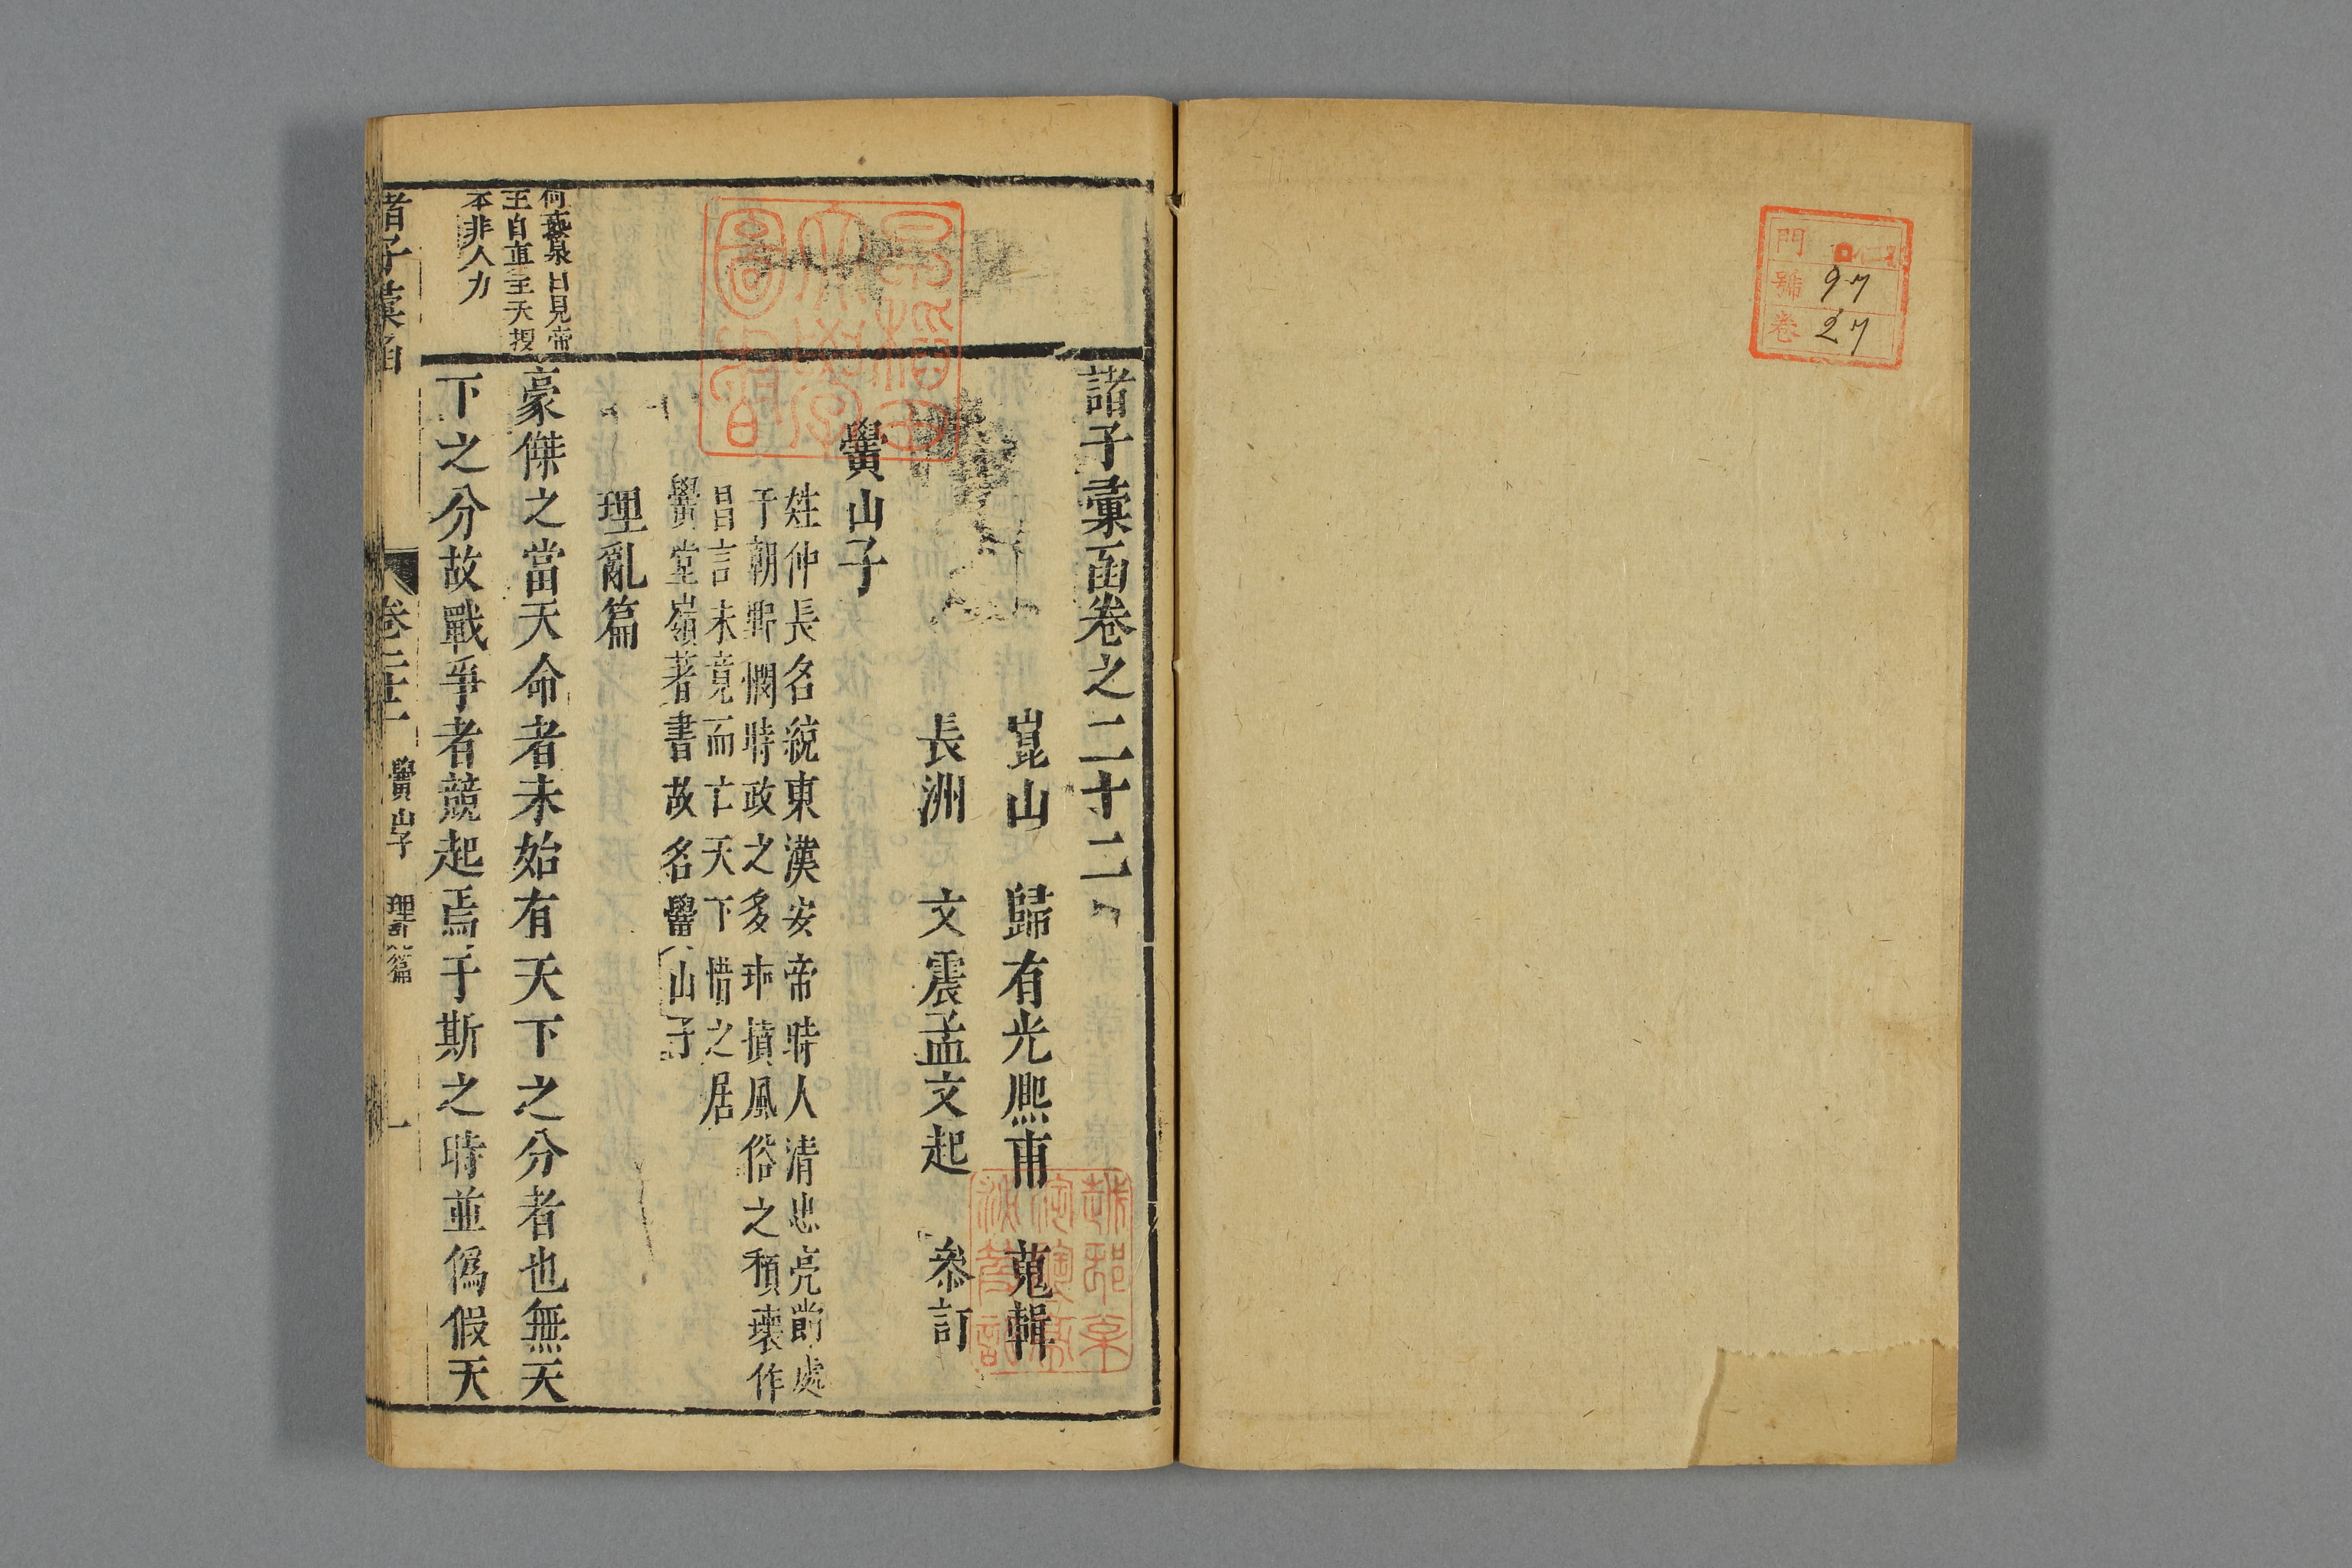 門
號 97
卷 27
諸子彙函卷之二十二
崑山 歸有光熈甫 蒐輯
長洲 文震孟文起 參訂
黌山子
姓仲長名統東漢安帝時人清忠亮節處
于朝野憫時政之多舛憤風俗之頹壞作
昌言未竟而亡天下惜之居
黌堂嶺著書故名黌山子
理亂篇
何燕泉曰見帝
王自有天授
本非人力
豪傑之當天命者未始有天下之分者也無天
下之分故戰爭者競起焉于斯之時並僞假天
諸子彙函
卷二十二
黌山子
理亂篇
一